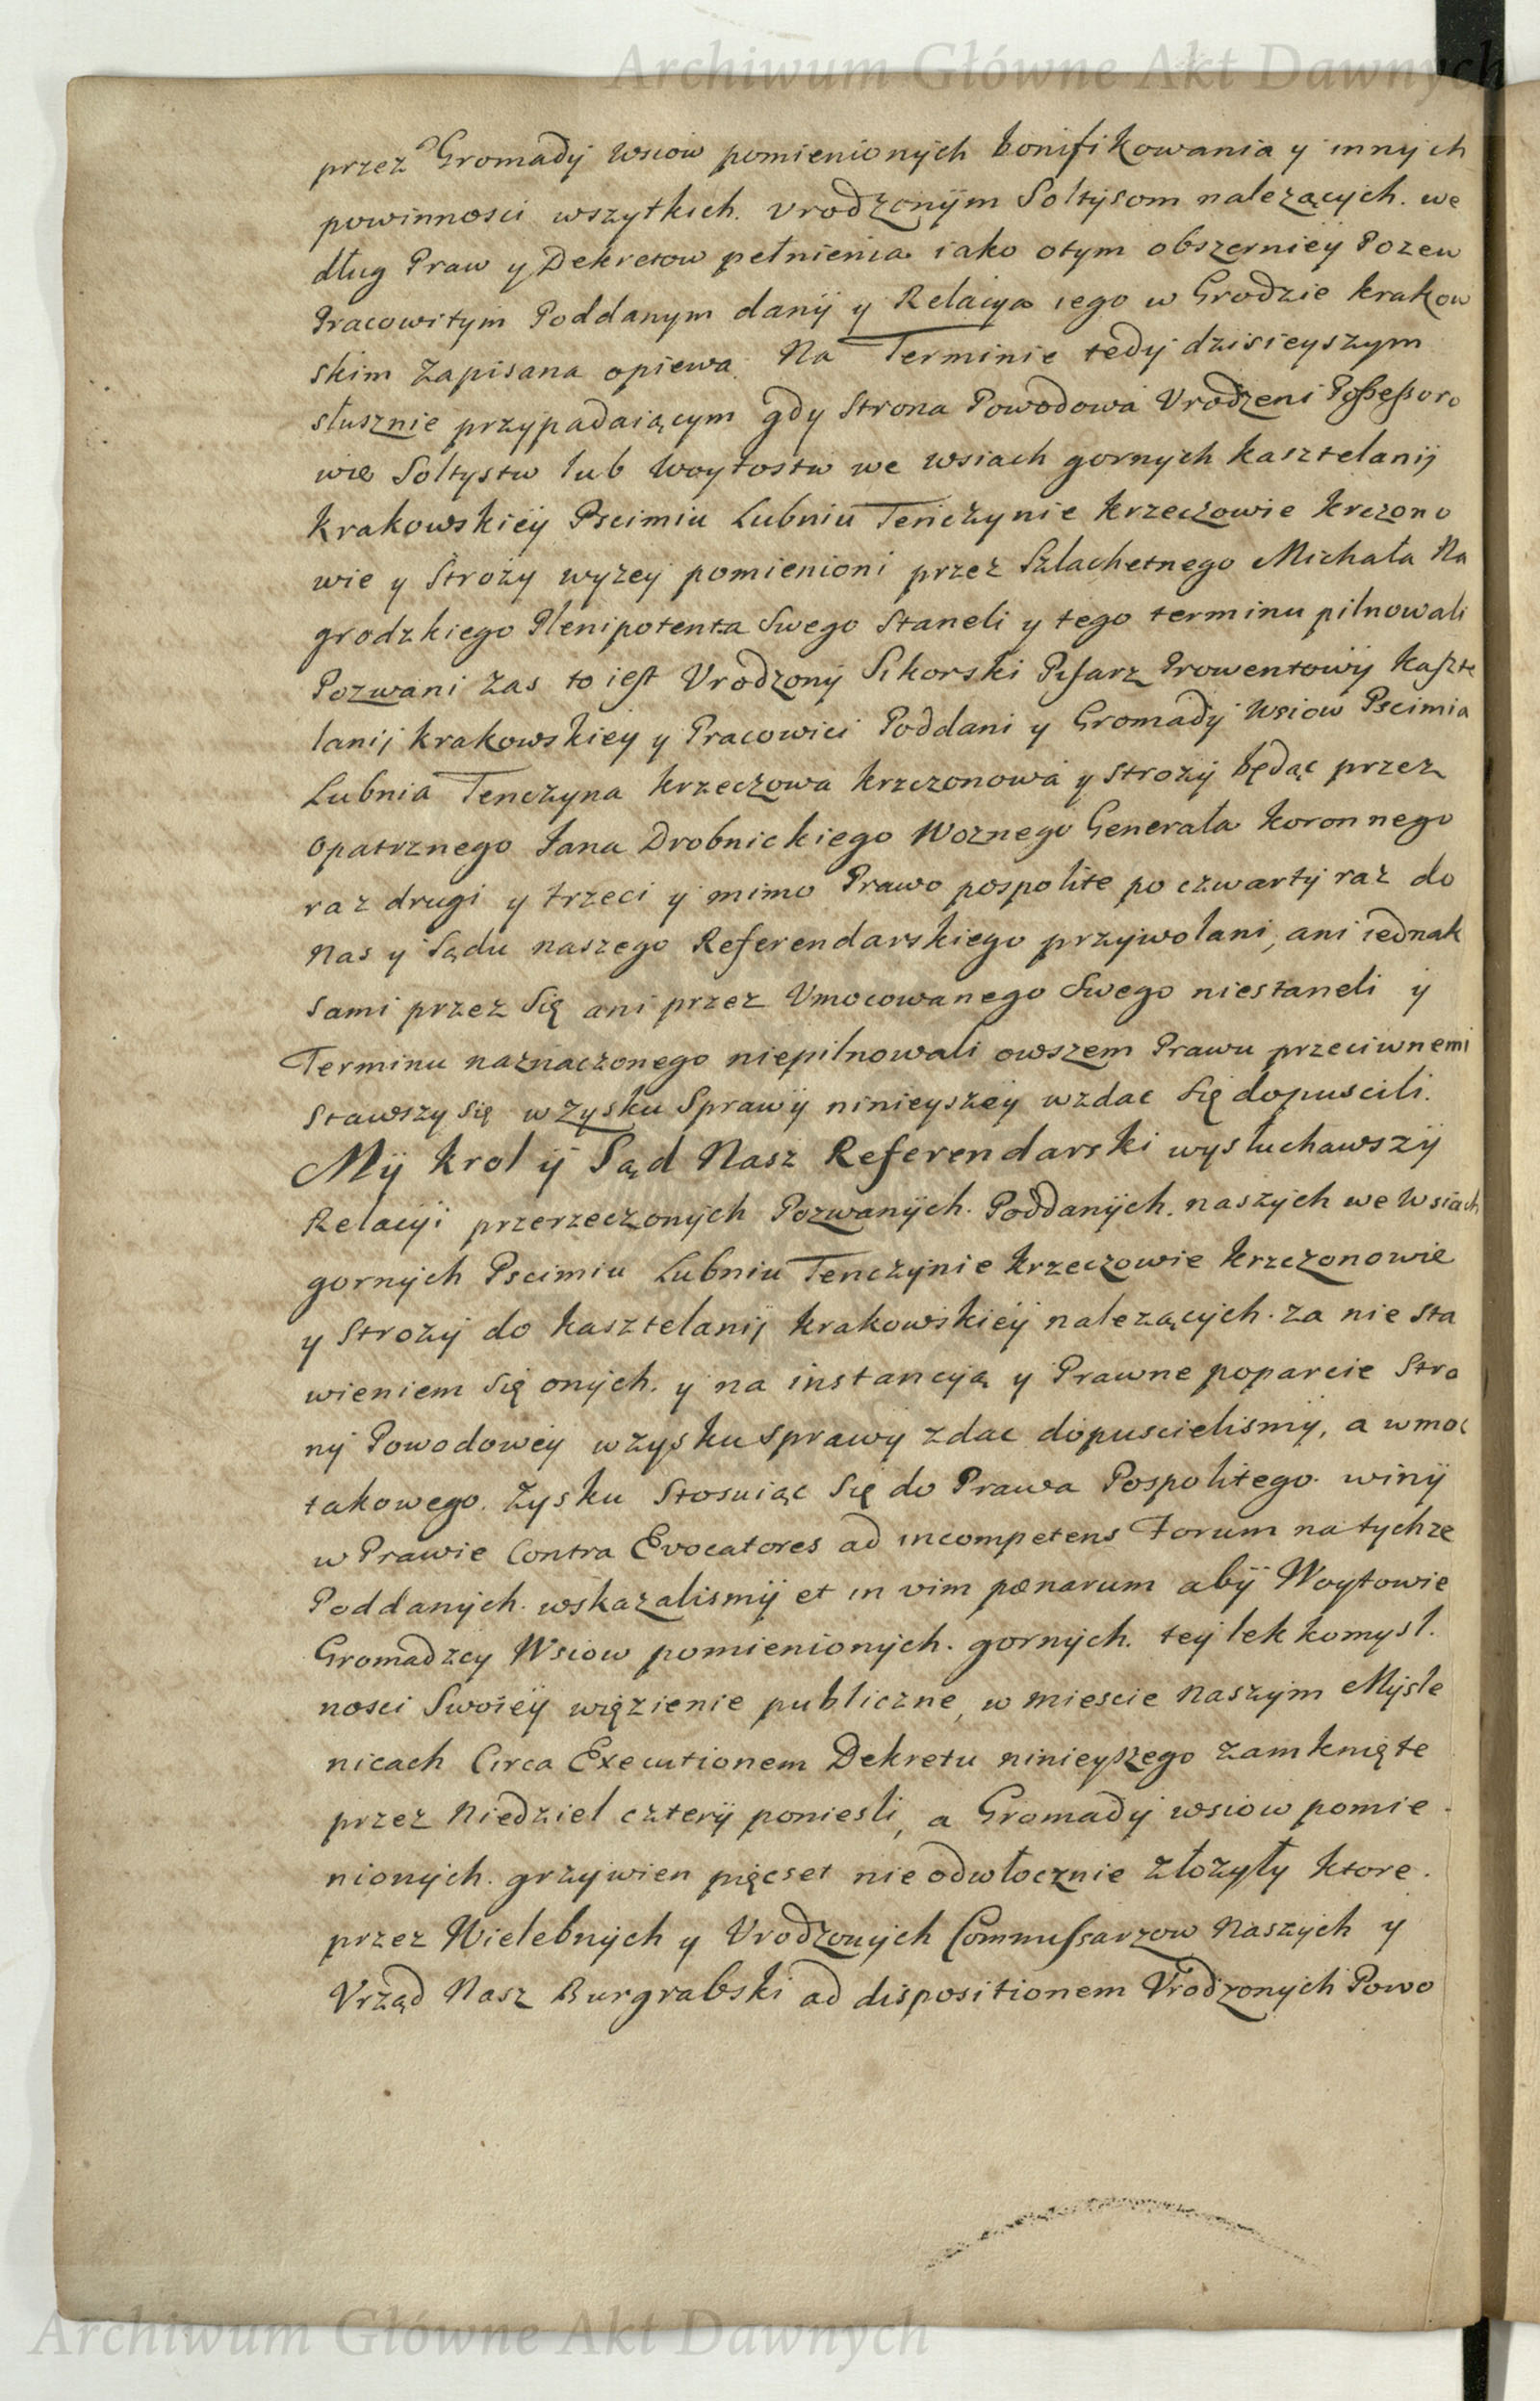 Archiwum Główne Akt Dawnych
przez Gromady wsiow pomienionych bonifikowania y innych
powinnosci wszytkich. vrodzonÿm Soltysom nalezących. we
dług Praw y Dekretow pełnienia iako otym obszernieÿ Pozew
Pracowitym Poddanym danÿ y Relacya iego w Grodzie krakow
skim zapisana opiewa. Na Terminie tedy dzisieyszym
słusznie przypadaiącym gdy Strona Powodowa Vrodzeni Poßeßoro
wie Soltystw lub woytostw we wsiach gornych kasztelanÿ
krakowskieÿ Pscimiu Lubniu Tenczynie krzeczowie krczono
wie y Strozy wyzey pomienioni przez Szlachetnego Michała Na
grodzkiego Plenipotenta Swego Staneli y tego terminu pilnowali
Pozwani zas to iest Vrodzony Sikorski Pisarz Prowentowÿ kaszte
lanij krakowskiey y Pracowici Poddani y Gromady wsiow Pscimia
Lubnia Tenczyna krzeczowa krzczonowa y Strozÿ będąc przez
opatrznego Jana Drobnickiego Woznego Generała koronnego
raz drugi y trzeci y mimo Prawo pospolite po czwarty raz do
nas y Sądu naszego Referendarskiego przywołani, ani iednak
sami przez Się ani przez Vmocowanego Swego niestaneli y
Terminu naznaczonego niepilnowali owszem Prawu przeciwnemi
stawszy się w zysku Sprawÿ ninieyszeÿ wzdac Się dopuscili.
Mÿ krol ÿ Sąd Nasz Referendarski wysłuchawszÿ
Relacyi przerzeczonych Pozwanÿch. Poddanÿch. naszych we wsiach
gornych Pscimiu Lubniu Tenczynie krzeczowie krzczonowie
y Strozy do kasztelanij krakowskieÿ nalezących. za nie sta
wieniem Się onych. y na instancyą y Prawne poparcie Stro
ny Powodoweÿ w zysku sprawy zdac dopuscielismy, a w moc
takowego. zysku Stosuiąc Się do Prawa Pospolitego. winÿ
w Prawie Contra Evocatores ad incompetens Forum na tychze
Poddanych. wskazalismÿ et in vim pœnarum abÿ Woytowie
Gromadzcy Wsiow pomienionych. gornych. tey lekkomysl.
nosci Swoieÿ więzienie publiczne, w miescie naszym Mysle
nicach Circa Executionem Dekretu ninieyszego zamknięte
przez niedziel czterÿ poniesli, a Gromady wsiow pomie
nionych. grzywien pięcset nieodwłocznie złozyły ktore.
przez Wielebnych y Vrodzonych Commissarzow Naszych y
Vrząd Nasz Burgrabski ad dispositionem Vrodzonych Powo
Archiwum Główne Akt Dawnych